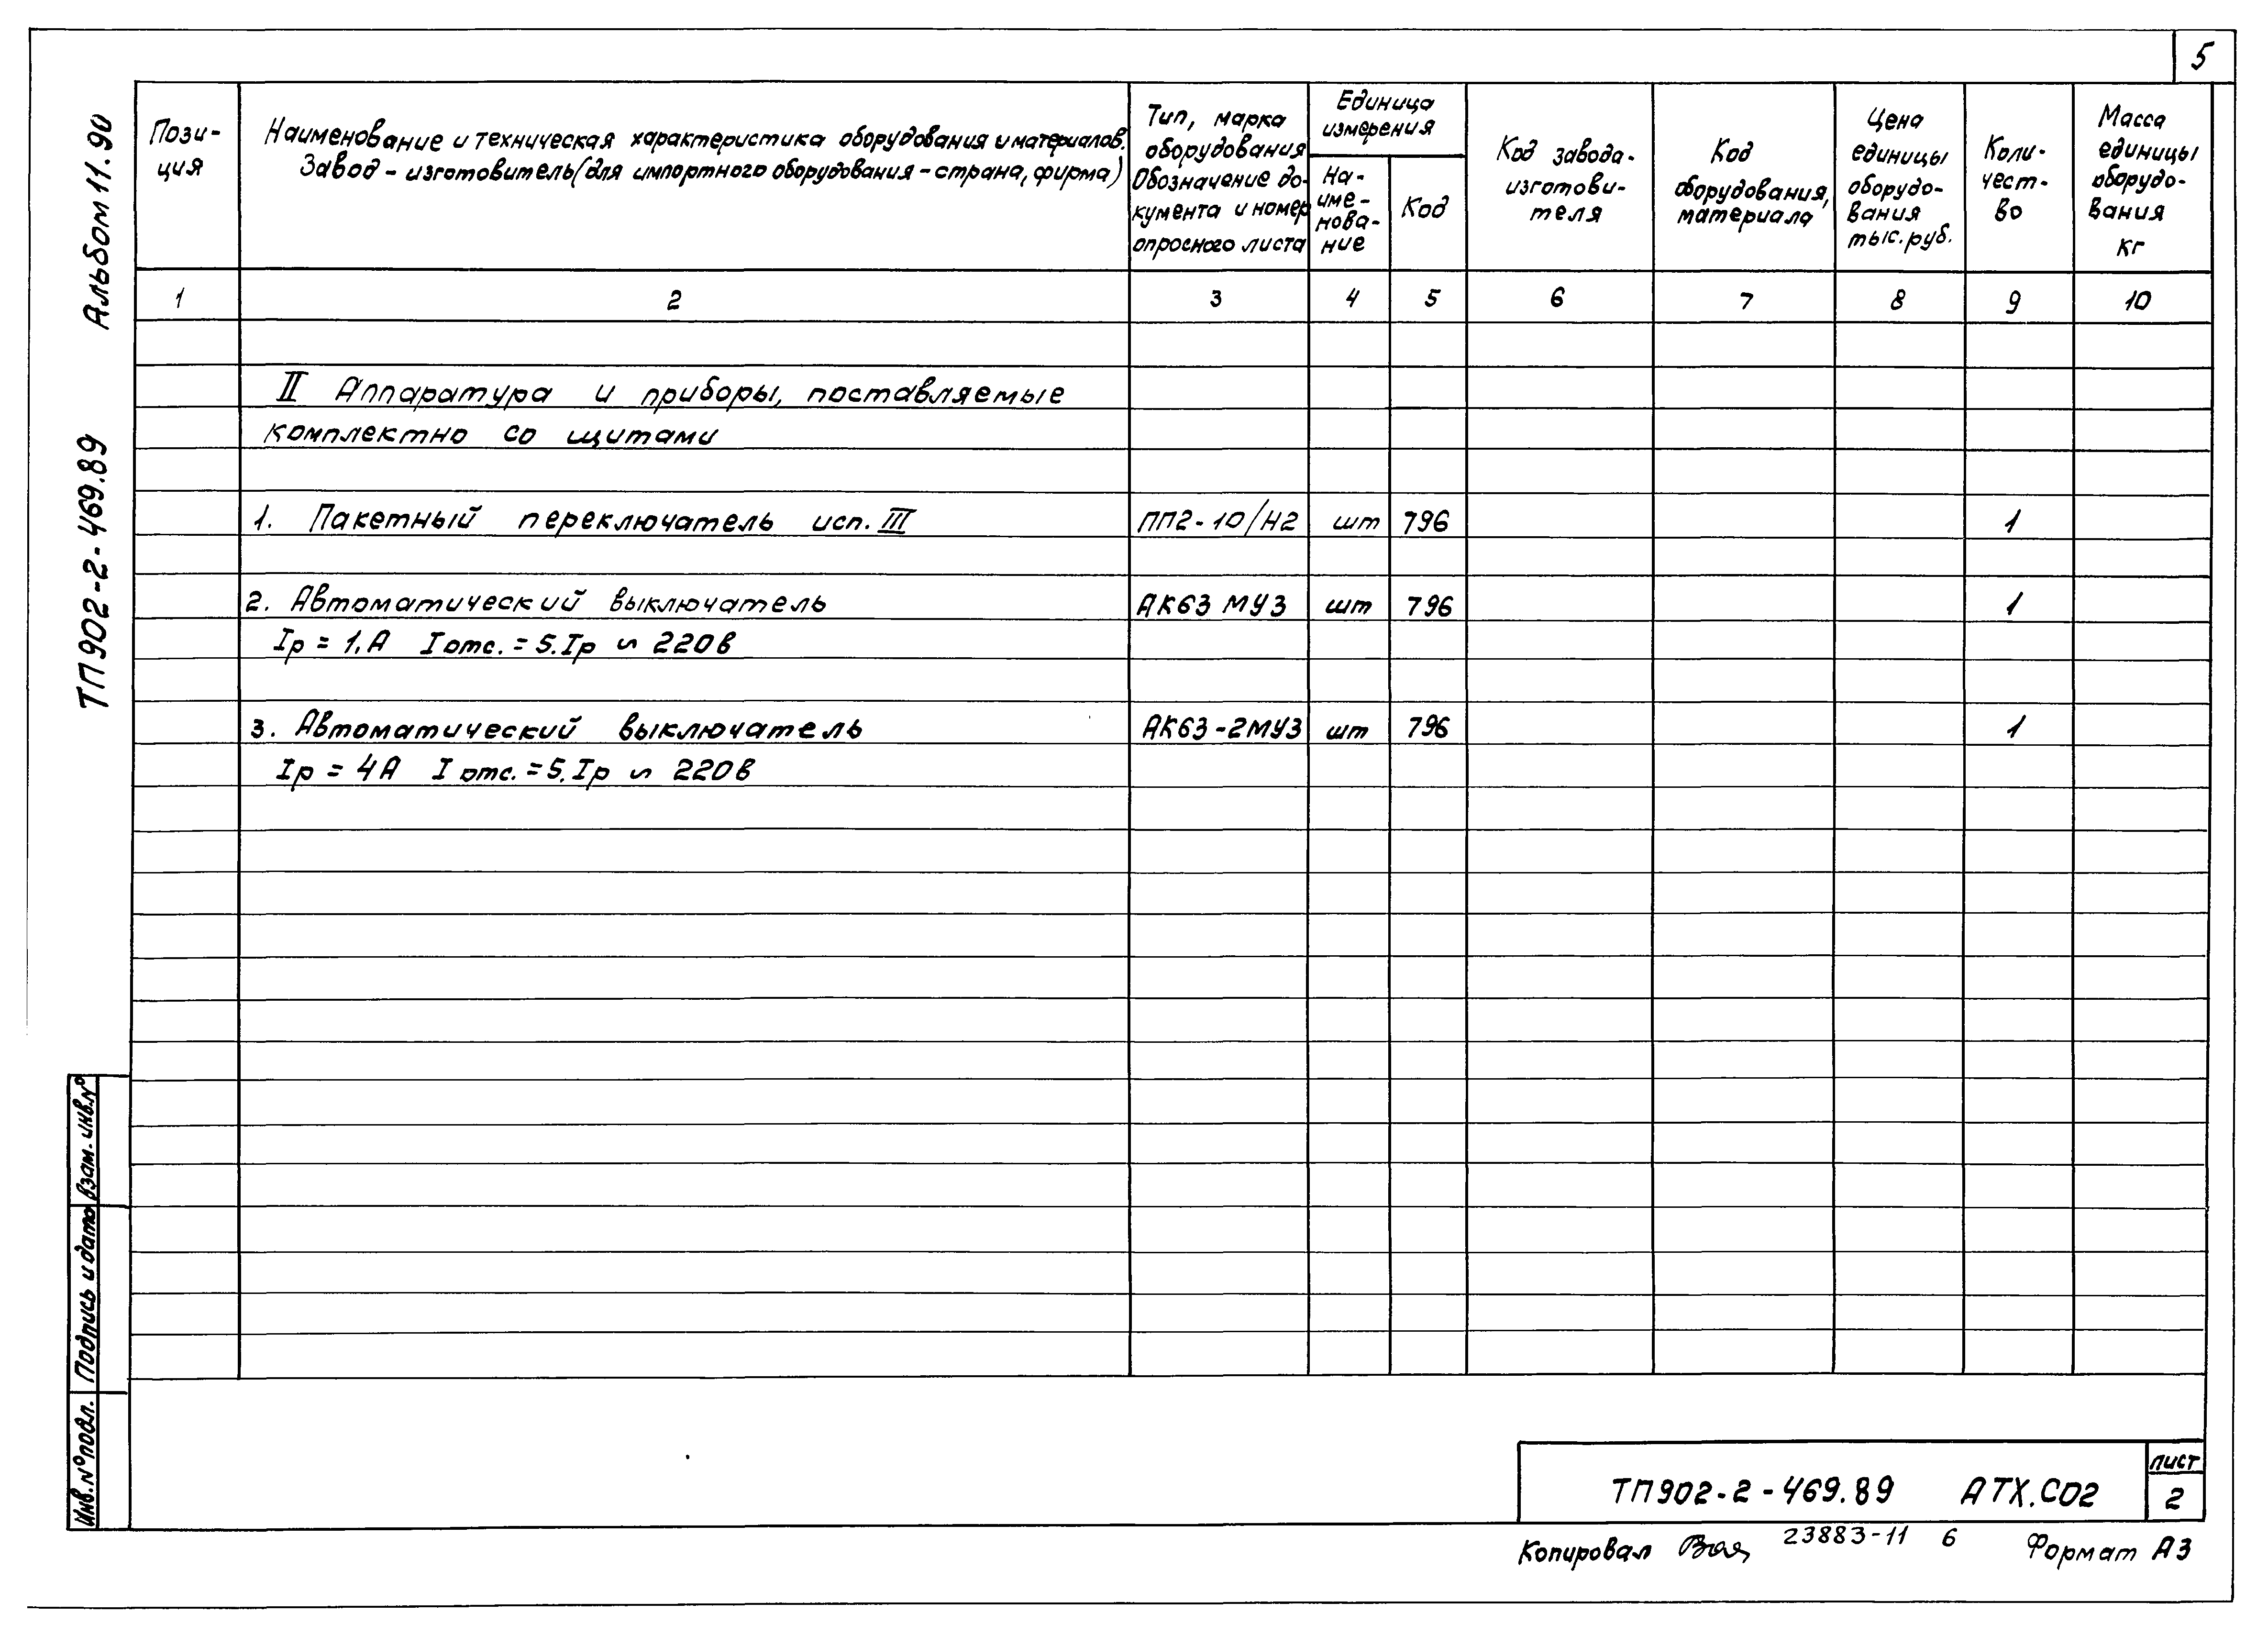 5
Альбом 11.90
ТП902-2-469.89
Пози-
ция
Наименование и техническая характеристика оборудования и материалов.
Завод - изготовитель (для импортного оборудования - страна, фирма)
Тип, марка
оборудования
Обозначение до-
кумента и номер
опросного листа
Единица
измерения
На-
име-
нова-
ние
Код
Код завода-
изготови-
теля
Код
оборудования,
материала
Цена
единицы
оборудо-
вания
тыс. руб.
Коли-
чест-
во
Масса
единицы
оборудо-
вания
кг
1 2 3 4 5 6 7 8 9 10
II Аппаратура и приборы, поставляемые
комплектно со щитами
1. Пакетный переключатель исп. III ПП2-10/Н2 шт 796 1
2. Автоматический выключатель АК63 МУ3 шт 796 1
Iр = 1.А Iотс. = 5.Iр ~ 220в
3. Автоматический выключатель АК63-2МУ3 шт 796 1
Iр = 4А Iотс. = 5.Iр ~ 220в
Взам. инв.№
Подпись и дата
Инв.№ подл.
ТП902-2-469.89 АТХ.СО2
лист
2
Копировал
23883-11 6
Формат А3